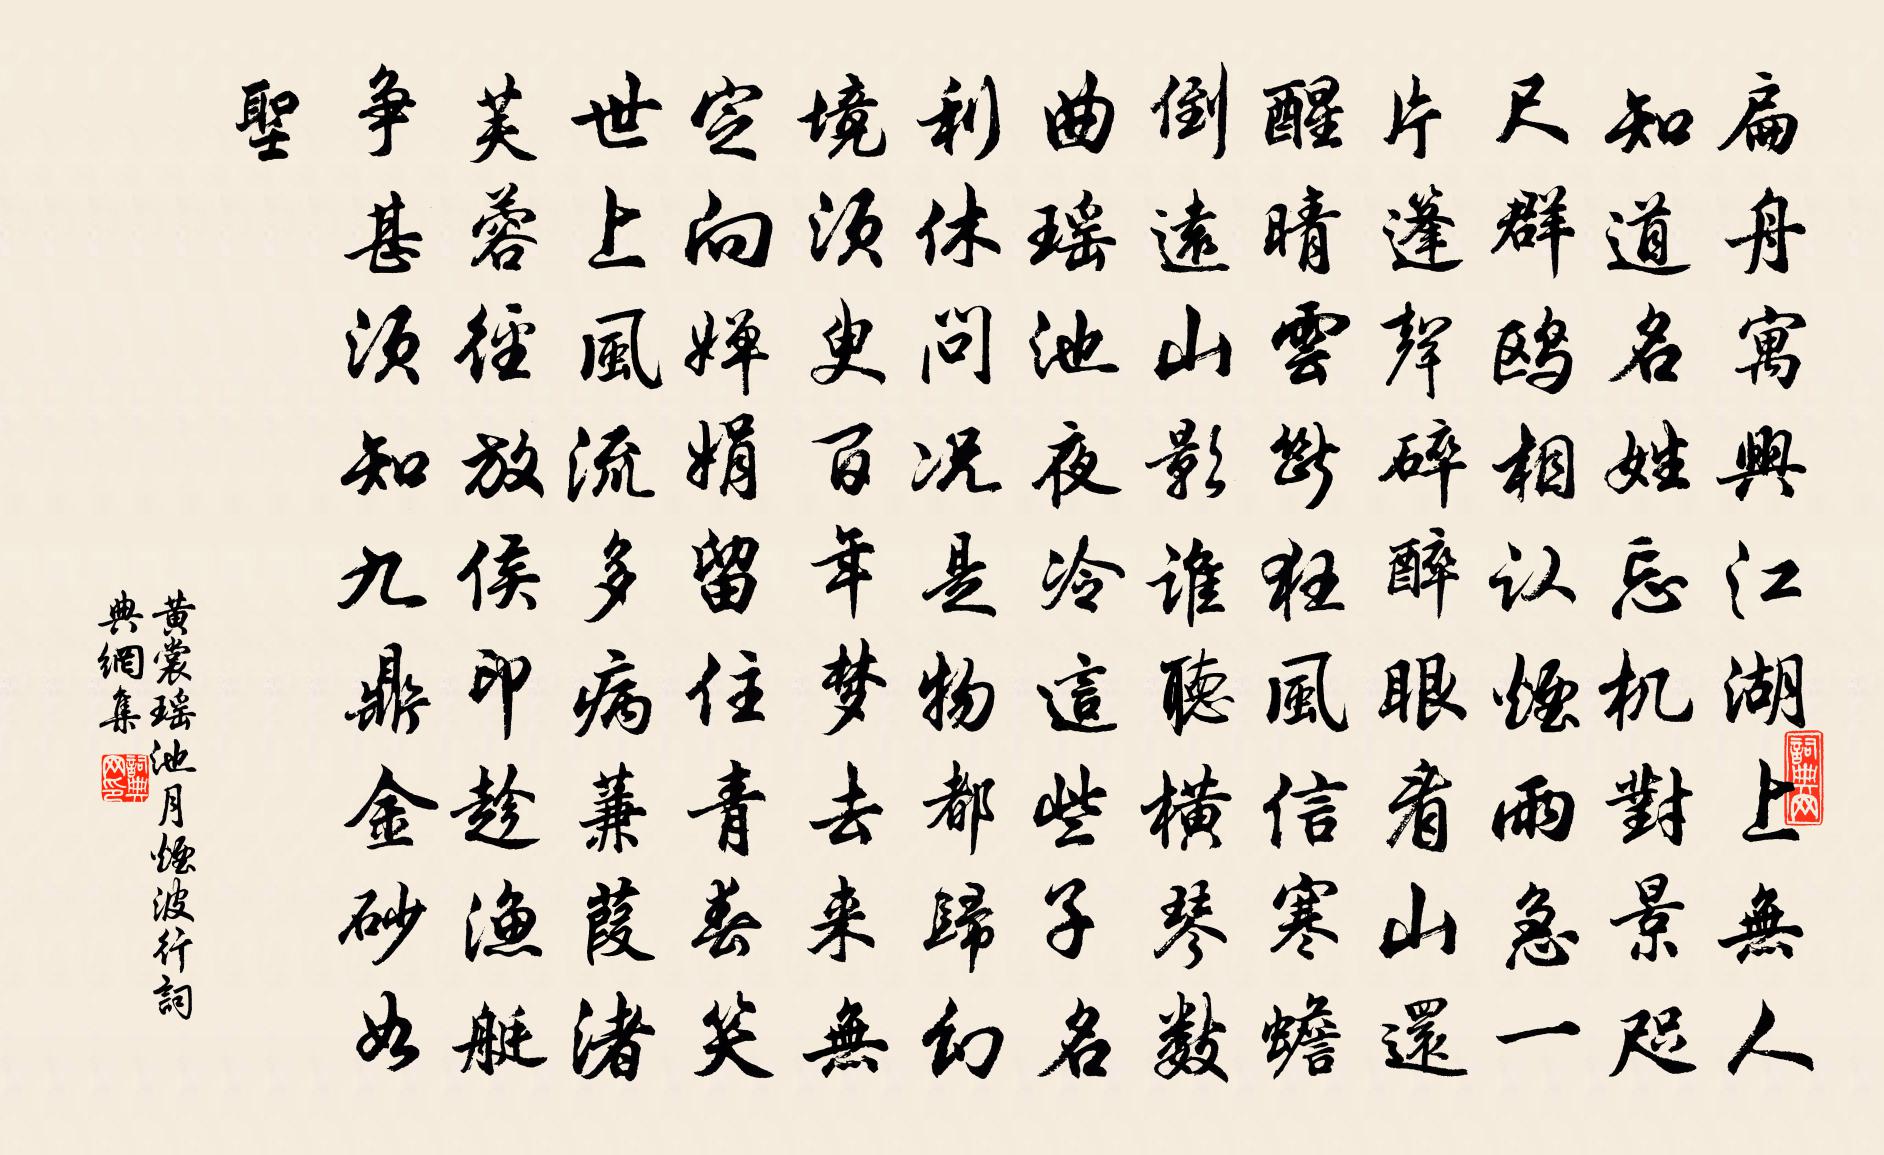 扁舟寓興江湖上無人
知道名姓忘机對景咫
尺群鸥相认煙雨急一
片篷聲碎醉眼看山還
醒晴雲斷狂風信寒蟾
倒遠山影誰聽橫琴數
曲瑶池夜冷這些子名
利休問况是物都歸幻
境須臾百年梦去来無
定向嬋娟留住青春笑
世上風流多病蒹葭渚
芙蓉徑放侯印趁漁艇
争甚須知九鼎金砂如
聖
黄裳瑶池月煙波行詞
典網集
詞典网
詞典网印